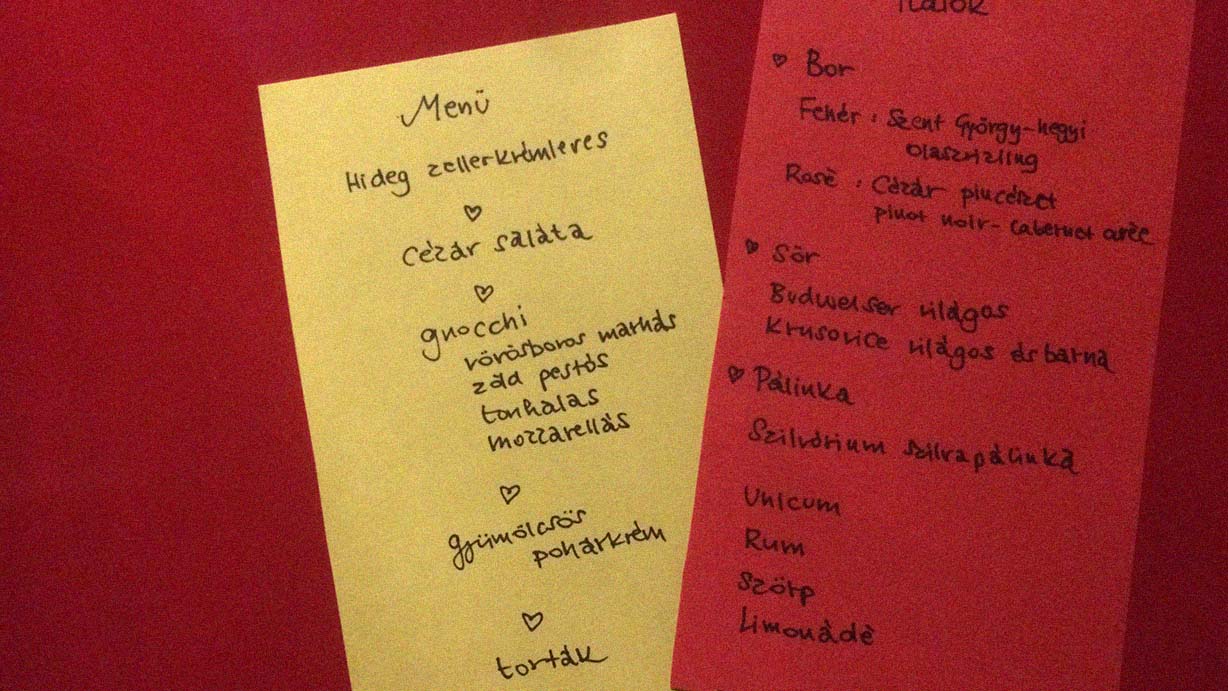 Menü
Hideg zellerkrémleves
Cézár saláta
gnocchi
vörösboros marhás
zöld pestós
tonhalas
mozzarellás
gyümölcsös
pohárkrém
torták
Italok
Bor
Fehér: Szent György-hegyi
olaszrizling
Rosé: Cézár pincészet
pinot noir - cabernet
Sör
Budweiser világos
Krusovice világos és barna
Pálinka
Szilvórium szilvapálinka
Unicum
Rum
Szörp
Limonádé